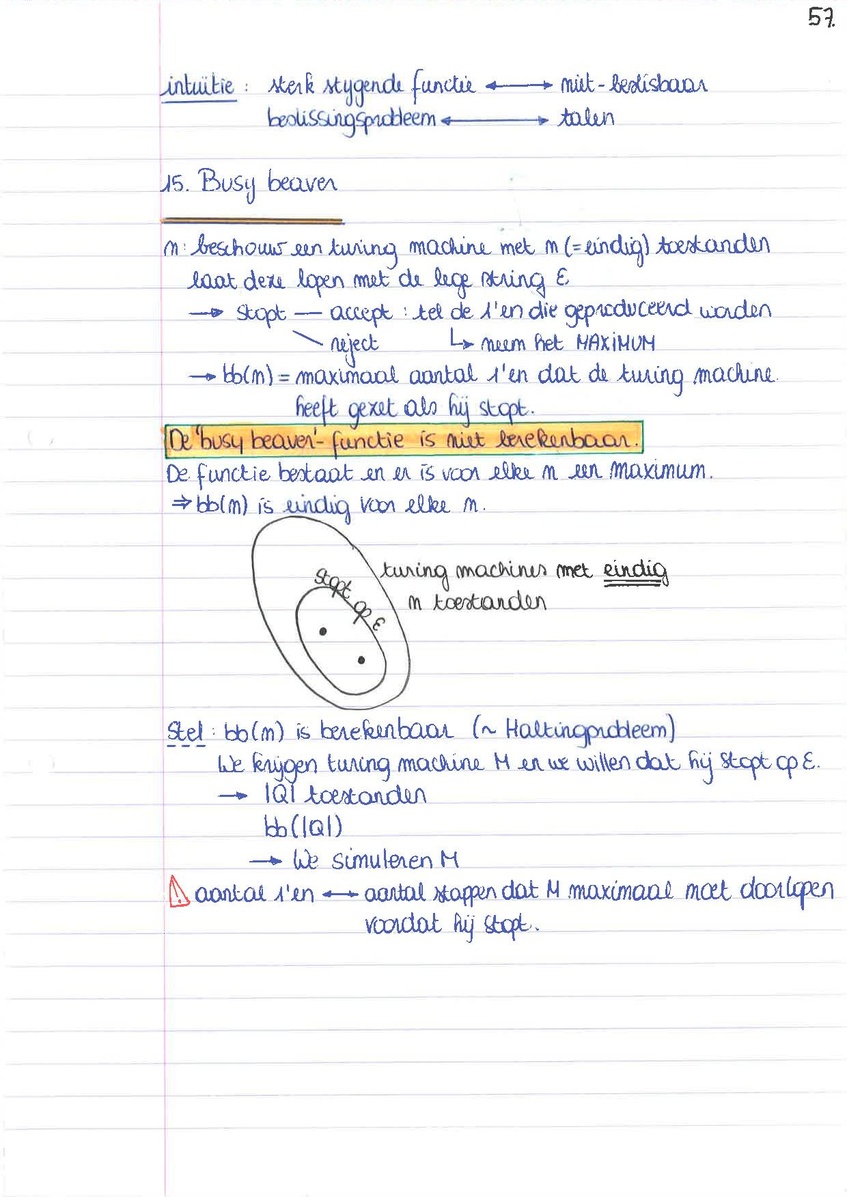 57.
intuïtie : sterk stygende functie ⟷ niet-beslisbaar
beslissingsprobleem ⟷ talen
15. Busy beaver
n: beschouw een turing machine met n (= eindig) toestanden
laat deze lopen met de lege string ε
→ stopt — accept : tel de 1'en die geproduceerd worden
\ reject ↳ neem het MAXIMUM
→ bb(n) = maximaal aantal 1'en dat de turing machine
heeft gezet als hij stopt.
De 'busy beaver'-functie is niet berekenbaar.
De functie bestaat en er is voor elke n een maximum.
⇒ bb(n) is eindig voor elke n.
stopt op ε
turing machines met eindig
n toestanden
Stel : bb(n) is berekenbaar (~ Haltingprobleem)
We krijgen turing machine M en we willen dat hij stopt op ε.
→ |Q| toestanden
bb(|Q|)
→ We simuleren M
⚠ aantal 1'en ⟷ aantal stappen dat M maximaal moet doorlopen
voordat hij stopt.